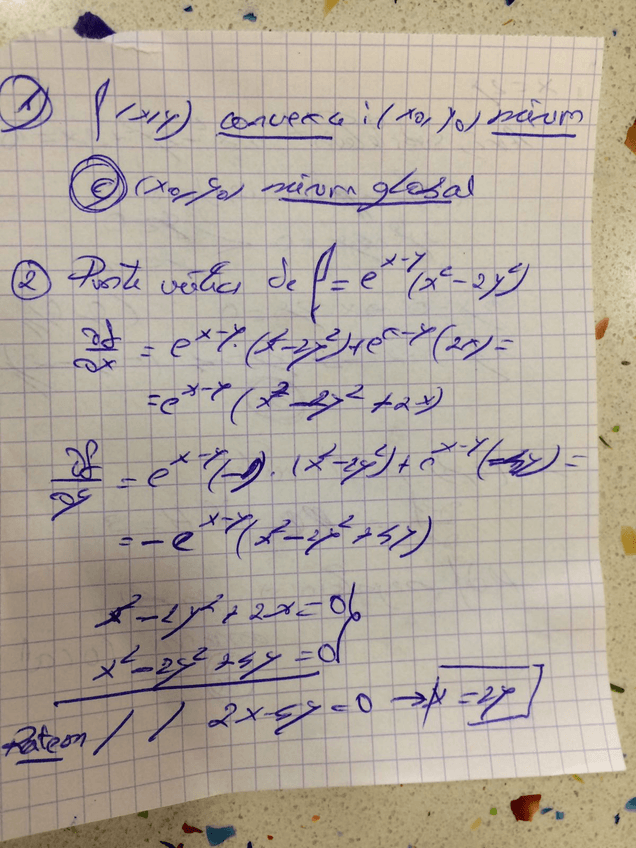 ① f(x,y) convexa i (x0, y0) mínim
ⓒ (x0, y0) mínim global
② Punts crítics de f = e^{x-y}(x² - 2y²)
∂f/∂x = e^{x-y} · (x² - 2y²) + e^{x-y}(2x) =
= e^{x-y} (x² - 2y² + 2x)
∂f/∂y = e^{x-y}(-1) · (x² - 2y²) + e^{x-y}(-4y) =
= -e^{x-y}(x² - 2y² + 4y)
x² - 2y² + 2x = 0 }
x² - 2y² + 4y = 0
Restem / / 2x - 4y = 0 → x = 2y